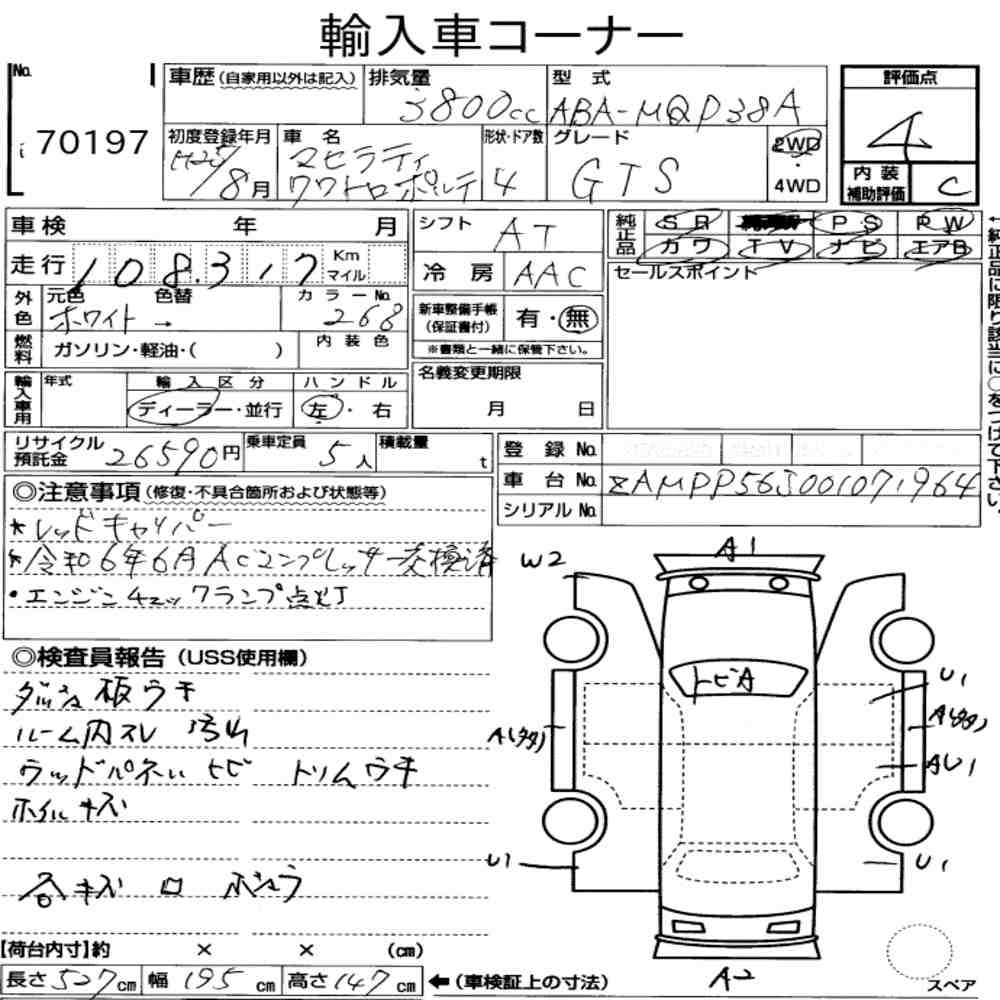 輸入車コーナー
No. 70197
車歴(自家用以外は記入) 排気量 3800cc 型式 ABA-MQP38A
初度登録年月 H25/8月 車名 マセラティ クワトロポルテ 形状・ドア数 4 グレード GTS 2WD・4WD
評価点 4
内装補助評価 C
車検 年 月
走行 108.317 Km マイル
外色 元色 ホワイト → 色替 カラーNo. 268
燃料 ガソリン・軽油・( ) 内装色
輸入車用 年式 輸入区分 ディーラー・並行 ハンドル 左・右
シフト AT
冷房 AAC
新車整備手帳(保証書付) 有・無
※書類と一緒に保管下さい。
名義変更期限
月 日
純正品 SR PS PW
カワ TV ナビ エアB
セールスポイント
←純正品に限り該当に○をつけて下さい。
リサイクル預託金 26590円 乗車定員 5人 積載量 t
登録No.
車台No. ZAMPP56J001071964
シリアルNo.
◎注意事項(修復・不具合箇所および状態等)
*レッドキャリパー
*令和6年6月ACコンプレッサー交換済
・エンジンチェックランプ点灯
◎検査員報告(USS使用欄)
ダッシュ板ウキ
ルーム内スレ 汚れ
ウッドパネル ヒビ トリムウキ
ホイルキズ
各キズ ロ ボソウ
A1
W2
トビA
U1
A(タタ)
A(タタ)
AU1
U1
U1
A2
スペア
【荷台内寸】約 × × (cm)
長さ527cm 幅195cm 高さ147cm ←(車検証上の寸法)